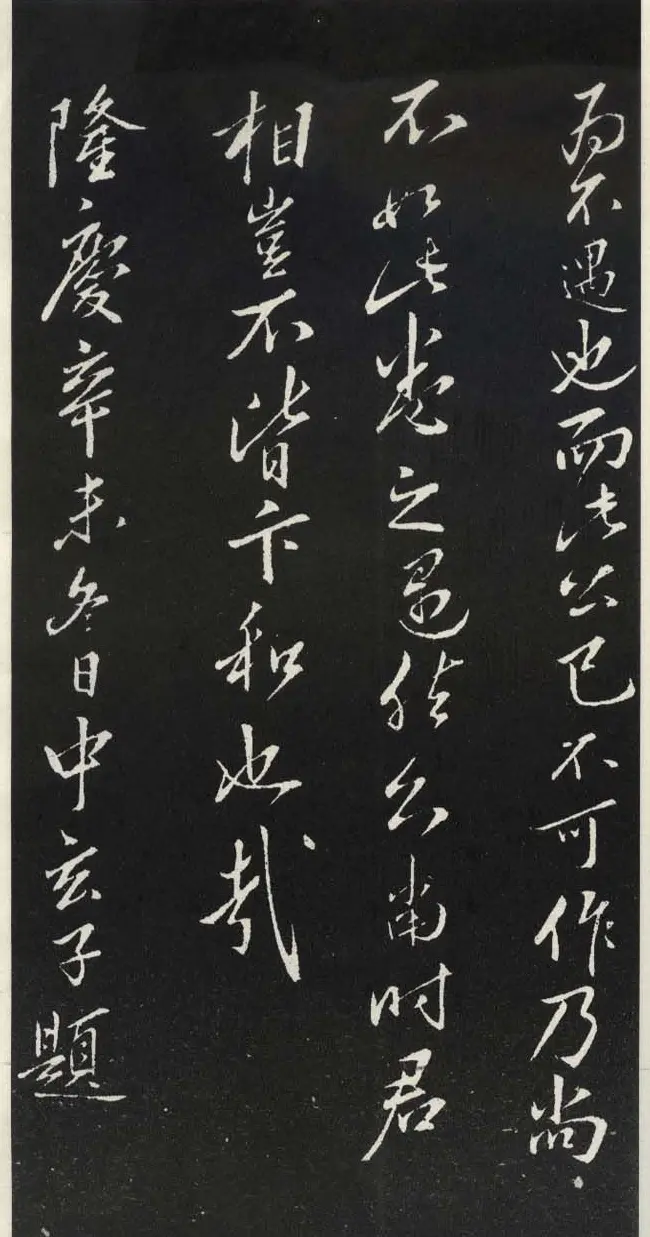 為不遇也而此公已不可作乃尚
不如此卷之遇公當時君
相豈不皆卞和也哉
隆慶辛未冬日中玄子題